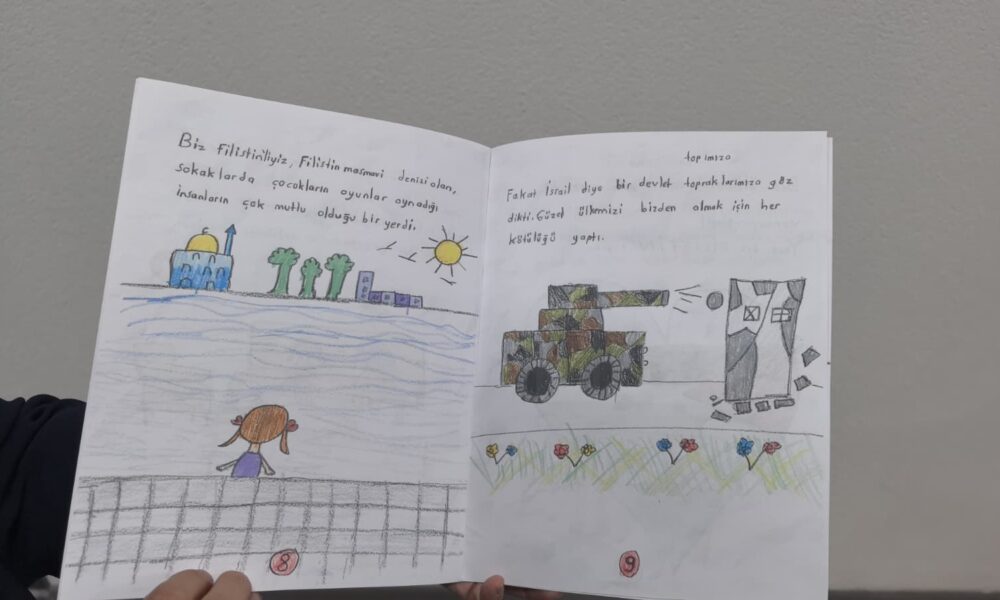 Biz Filistinliyiz, Filistin masmavi denizi olan,
sokaklarda çocukların oyunlar oynadığı
insanların çok mutlu olduğu bir yerdi.
8
topımıza
Fakat İsrail diye bir devlet topraklarımıza göz
dikti. Güzel ülkemizi bizden almak için her
kötülüğü yaptı.
9